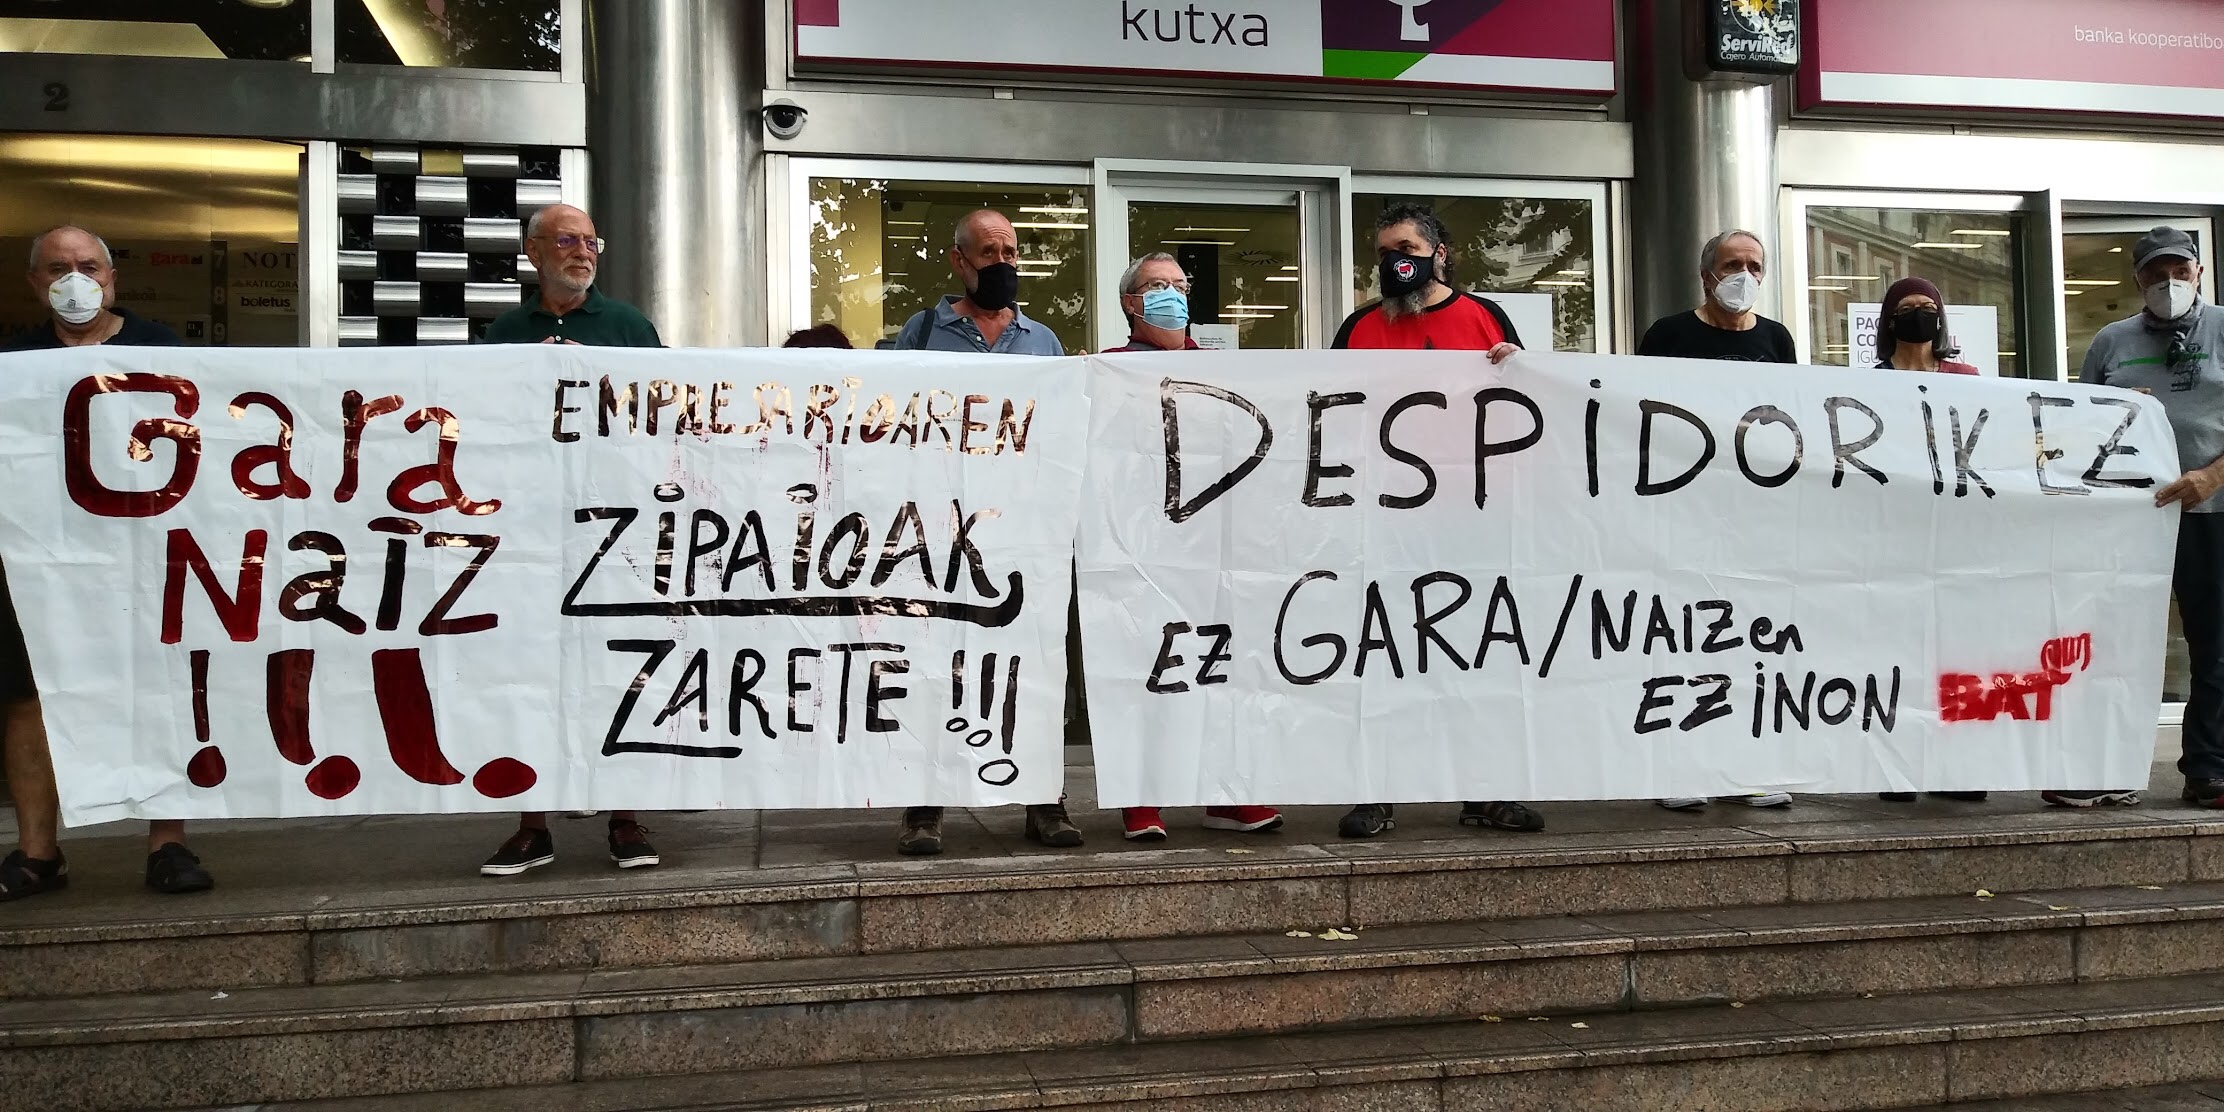 kutxa
ServiRed
Cajero Automático
banka kooperatibo
2
gara
7
NOT
KATEGORA
8
boletus
9
Gara
Naiz
!!!
EMPRESARIOAREN
ZIPAIOAK
ZARETE !!!
DESPIDORIK EZ
EZ GARA/NAIZen
EZ INON
BAT